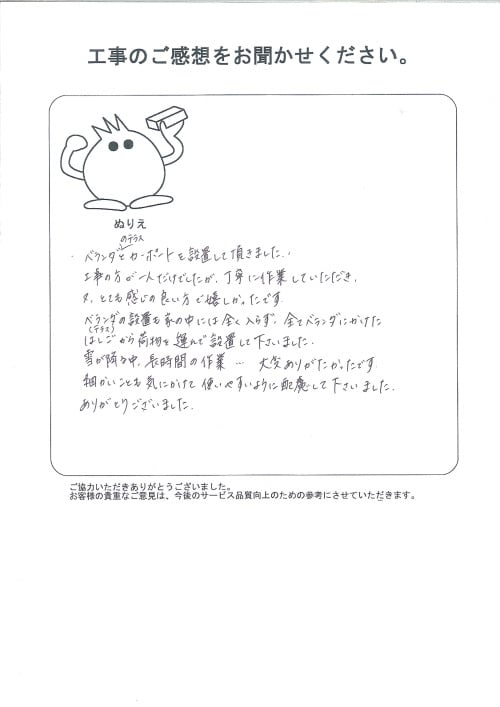 工事のご感想をお聞かせください。
ぬりえ
のテラス
・ベランダとカーポートを設置して頂きました。
工事の方が一人だけでしたが、丁寧に作業していただき、
又、とても感じの良い方で嬉しかったです。
ベランダの設置も家の中には全く入らず、全てベランダにかけた
(テラス)
はしごから荷物を運んで設置して下さいました。
雪が降る中、長時間の作業… 大変ありがたかったです。
細かいことも気にかけて使いやすいように配慮して下さいました。
ありがとうございました。
ご協力いただきありがとうございました。
お客様の貴重なご意見は、今後のサービス品質向上のための参考にさせていただきます。